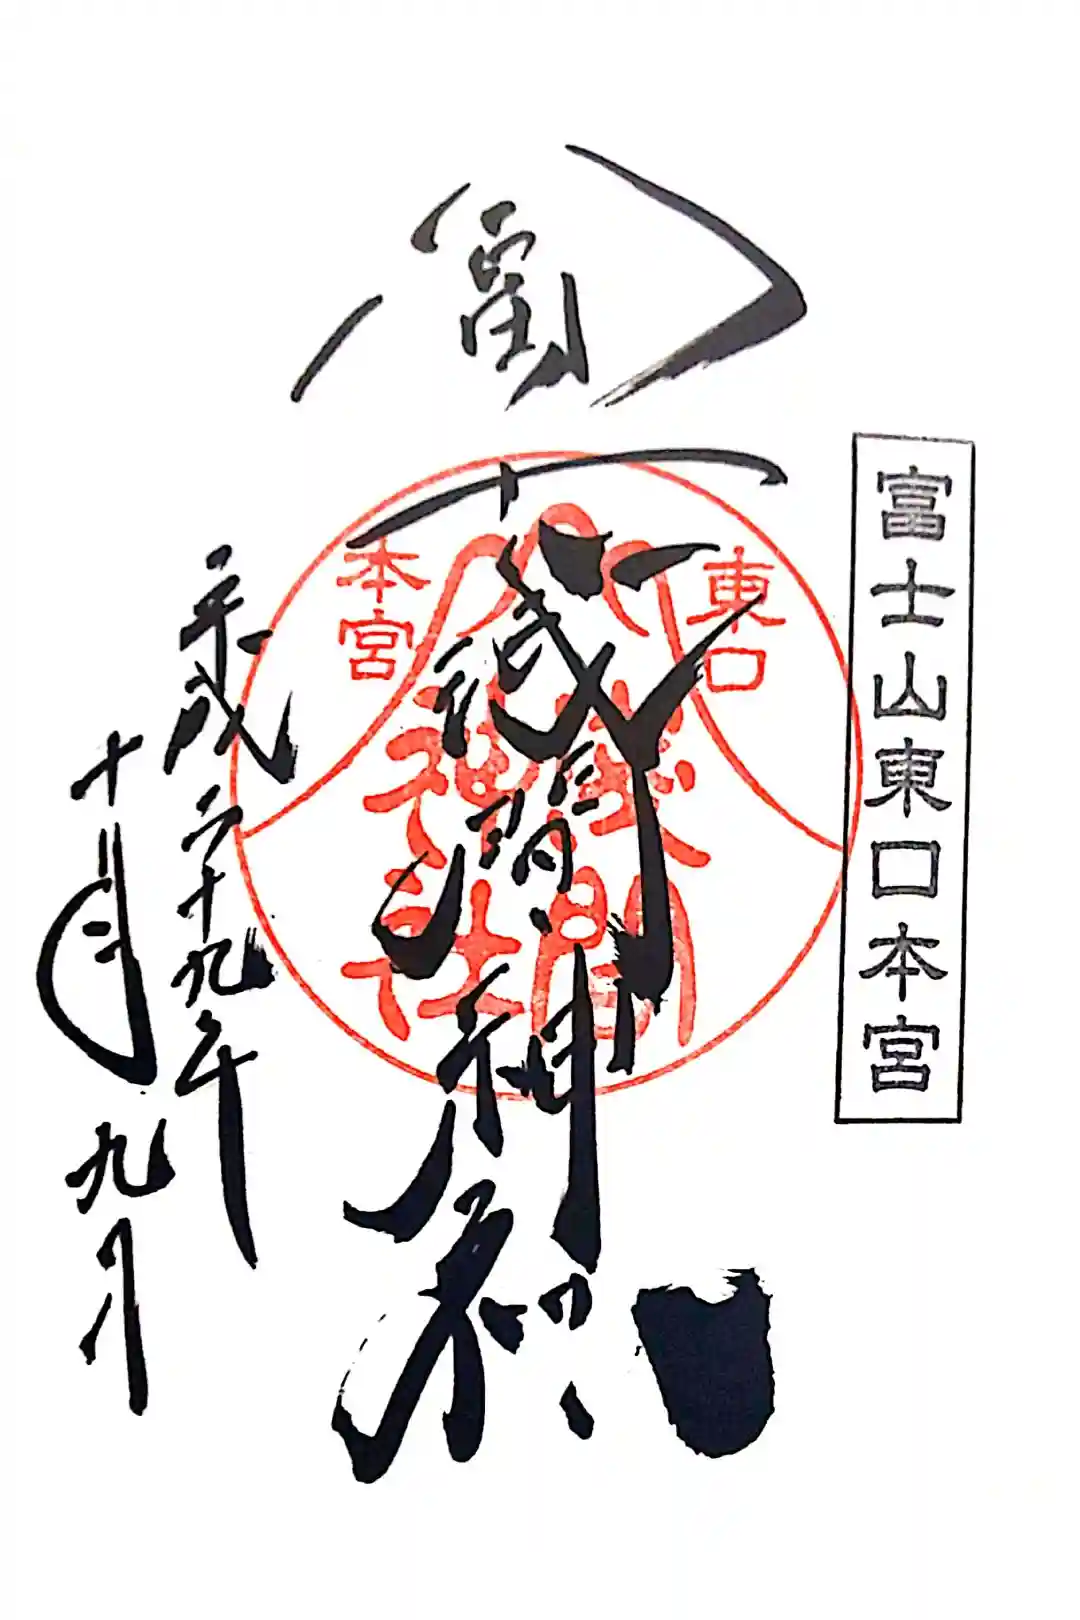 富士山東口本宮
冨士浅間神社
東口
本宮
浅間
神社
平成二十九年
十月九日